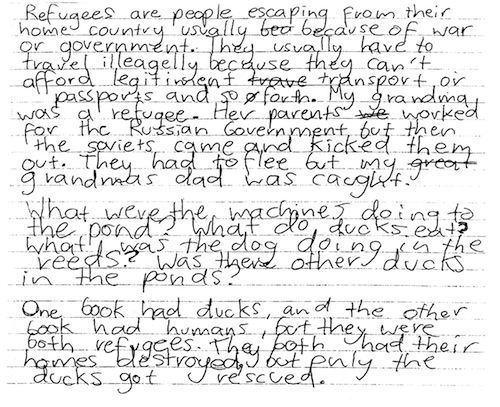 Refugees are people escaping from their
home country usually beo because of war
or government. They usually have to
travel illeagelly because they can't
afford legitiment trave transport or
passports and so forth. My grandma
was a refugee. Her parents we worked
for the Russian Government but then
the soviets came and kicked them
out. They had to flee but my great
grandmas dad was caught.
What were the machines doing to
the pond? What do ducks eat?
what was the dog doing in the
reeds? Was there other ducks
in the ponds?
One book had ducks, and the other
book had humans, but they were
both refugees. They both had their
homes destroyed, but only the
ducks got rescued.